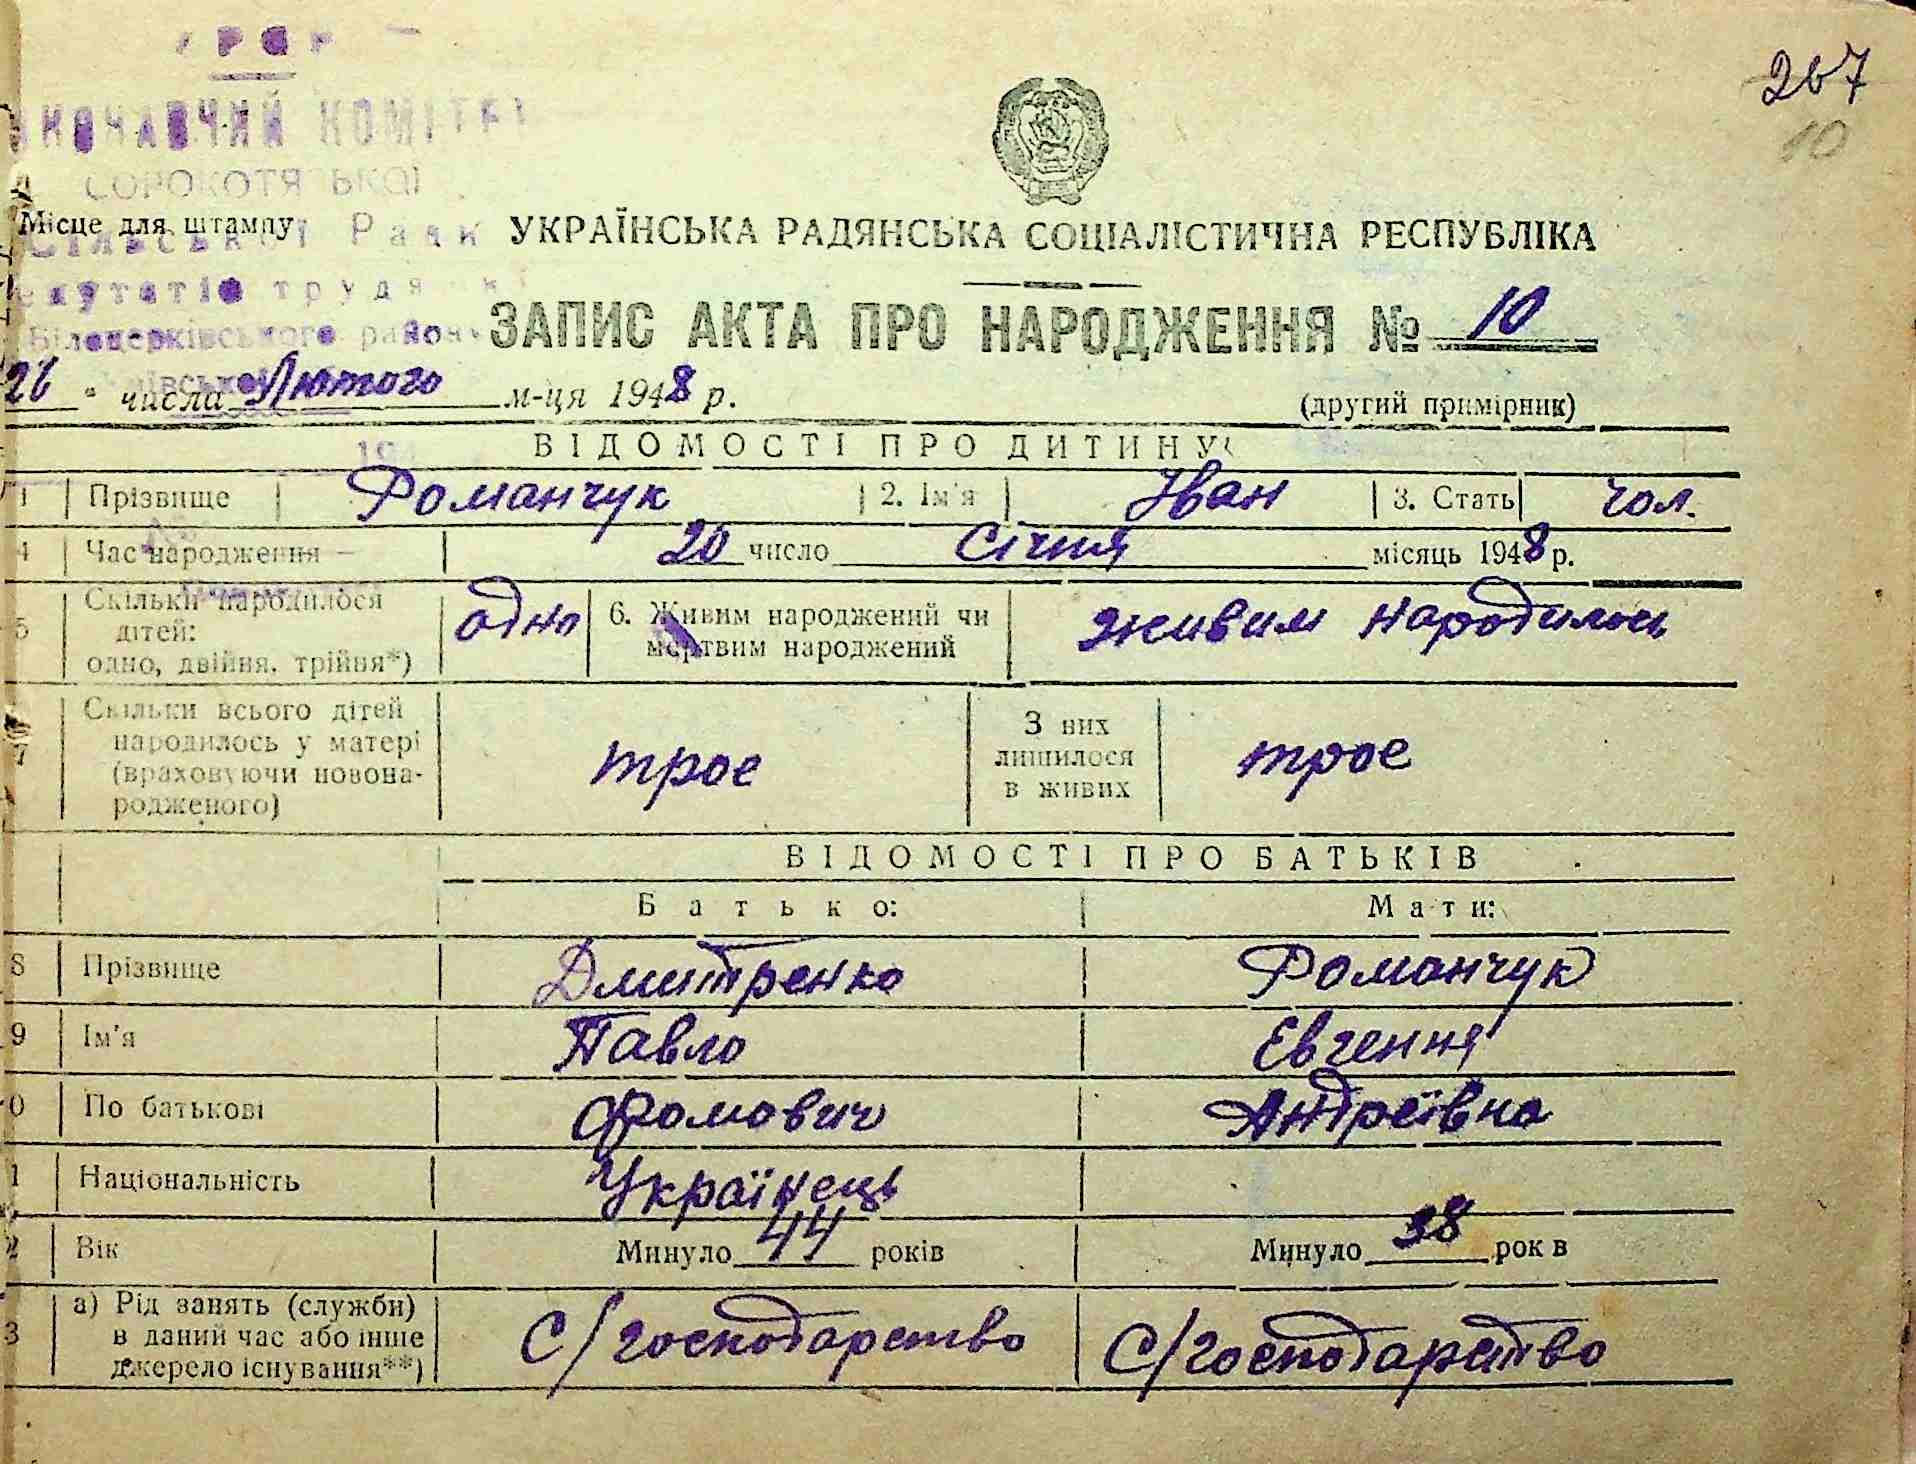 207
10
КОМІТЕТ
СОРОКОТЯ ЬКОЇ
Місце для штампу
Сільської Ради
УКРАЇНСЬКА РАДЯНСЬКА СОЦІАЛІСТИЧНА РЕСПУБЛІКА
Білоцерківського району
ЗАПИС АКТА ПРО НАРОДЖЕННЯ № 10
числа Лютого м-ця 1948 р.
(другий примірник)
ВІДОМОСТІ ПРО ДИТИНУ
1 Прізвище Романчук 2. Ім'я Іван 3. Стать чол.
4 Час народження — 20 число Січня місяць 1948 р.
5 Скільки народилося дітей: одно, двійня, трійня*) одно 6. Живим народжений чи мертвим народжений живим народилось
7 Скільки всього дітей народилось у матері (враховуючи новонародженого) троє З них лишилося в живих троє
ВІДОМОСТІ ПРО БАТЬКІВ
Батько: Мати:
8 Прізвище Дмитренко Романчук
9 Ім'я Павло Євгенія
0 По батькові Фомович Андреївна
1 Національність Українець
2 Вік Минуло 44 років Минуло 38 рок в
3 а) Рід занять (служби) в даний час або інше джерело існування**) С/господарство С/господарство